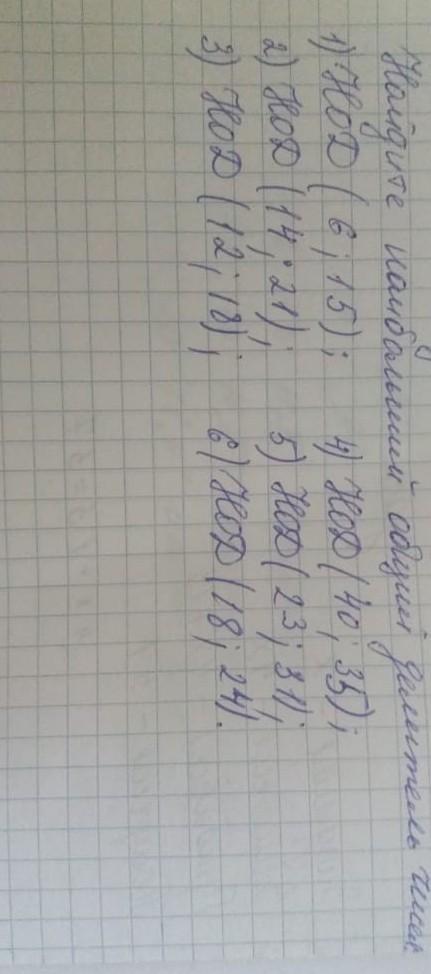 Найдите наибольший общий делитель чисел
1) НОД (6; 15); 4) НОД (40; 35);
2) НОД (14; 21); 5) НОД (23; 31);
3) НОД (12; 18); 6) НОД (18; 24).